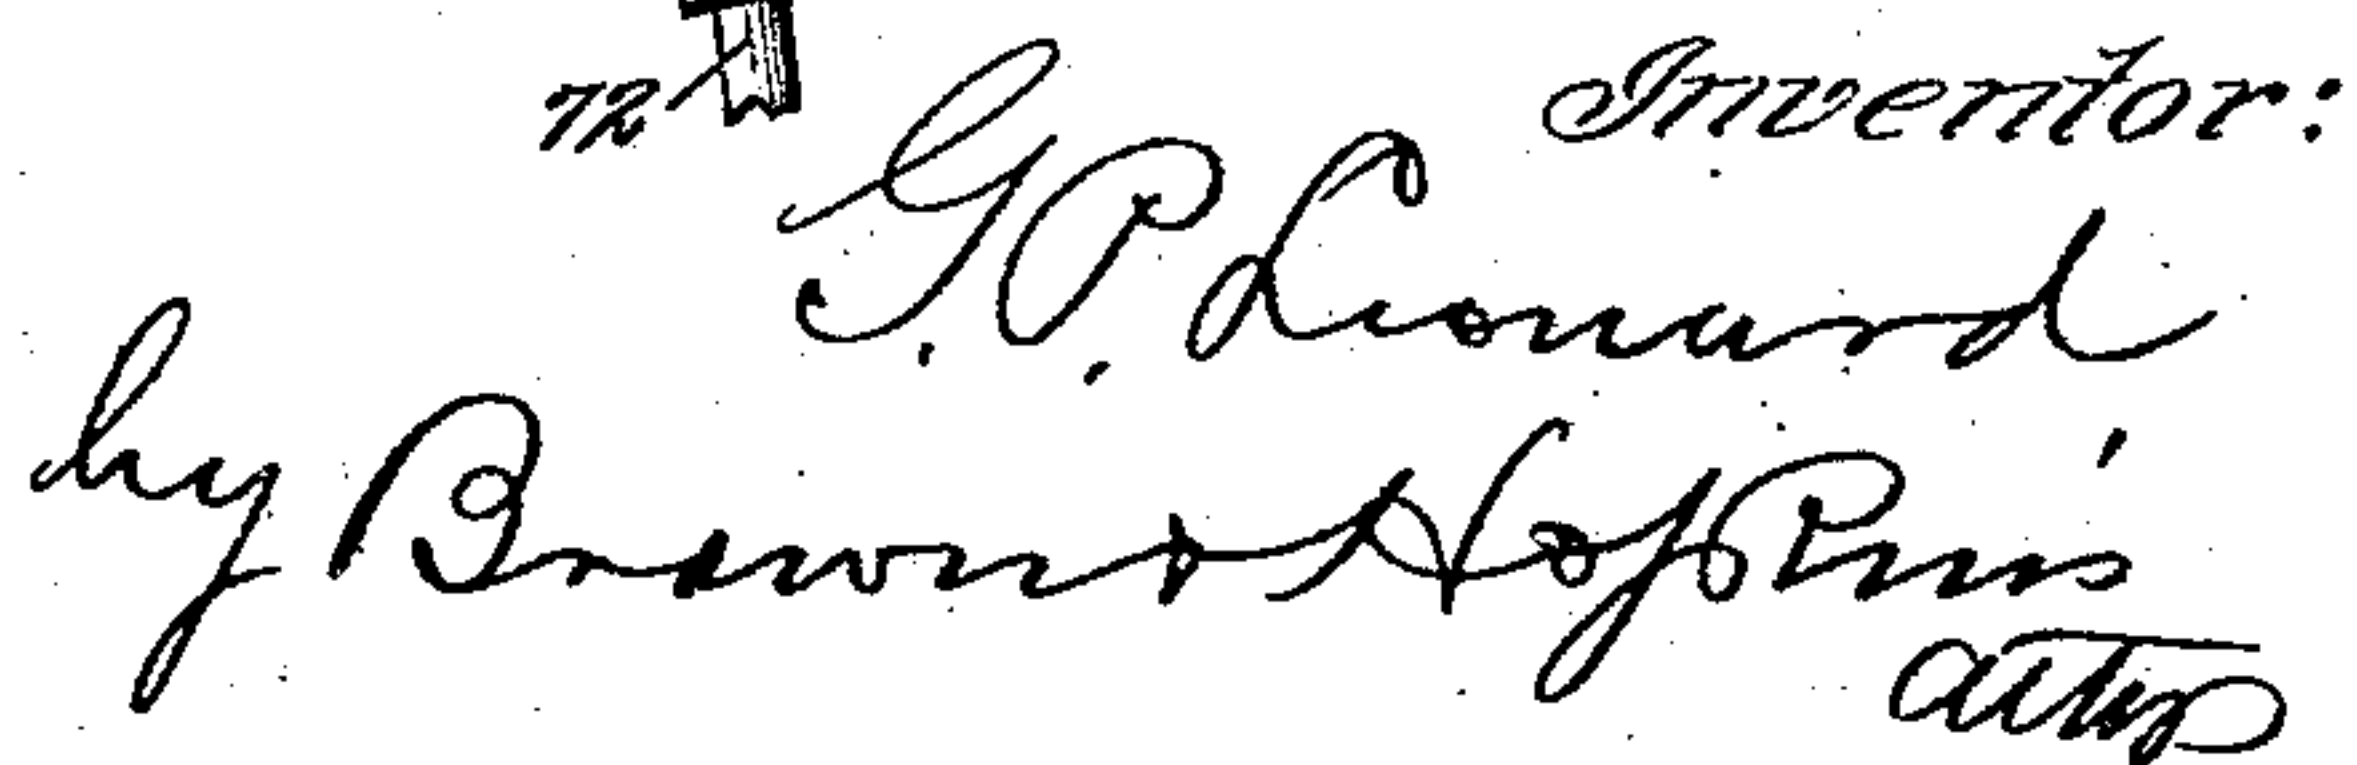 72
Inventor:
G. P. Leonard
by Brown &
Attys